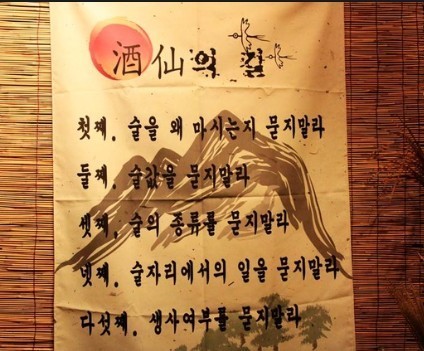 酒仙의 길
첫째, 술을 왜 마시는지 묻지말라
둘째, 술값을 묻지말라
셋째, 술의 종류를 묻지말라
넷째, 술자리에서의 일을 묻지말라
다섯째, 생사여부를 묻지말라